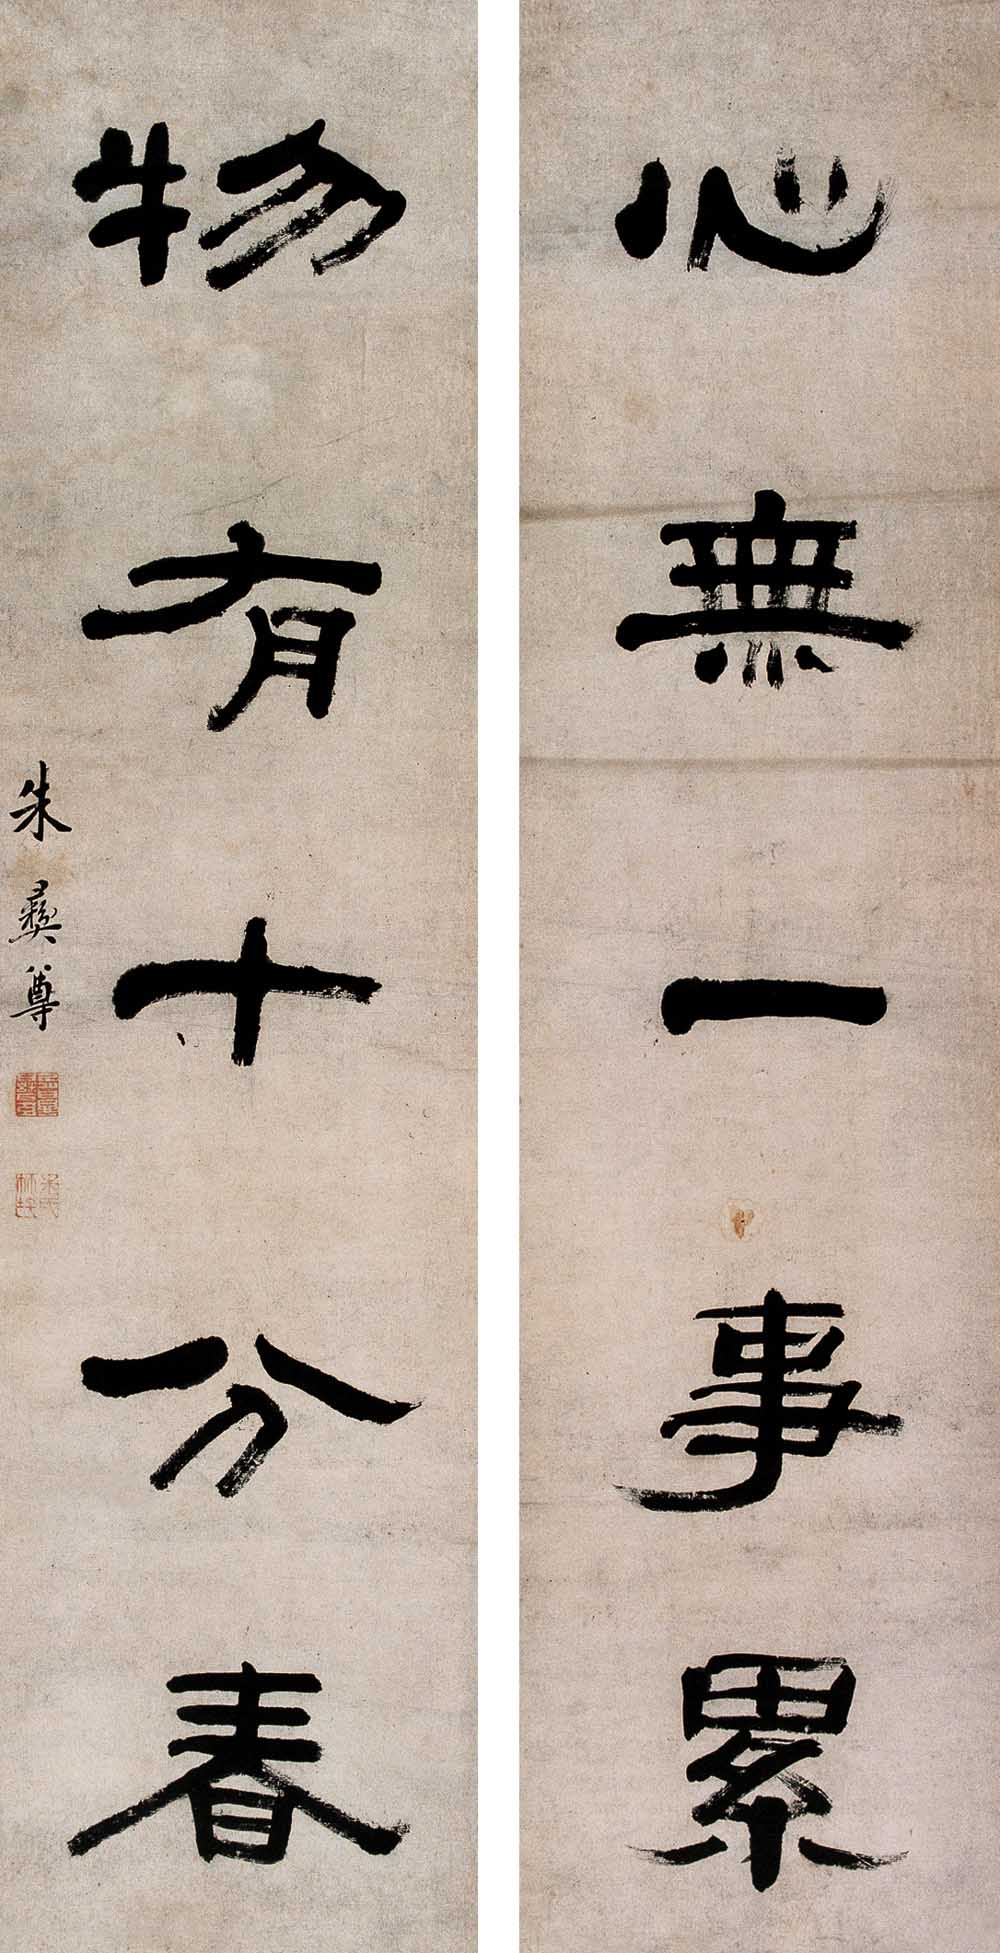 心無一事累
物有十分春
朱彝尊